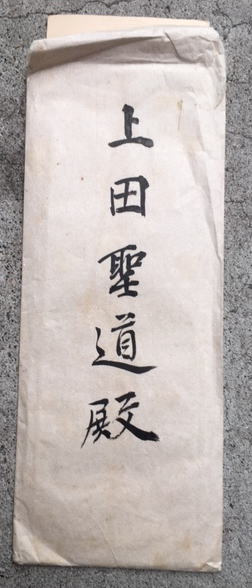 上田聖道殿